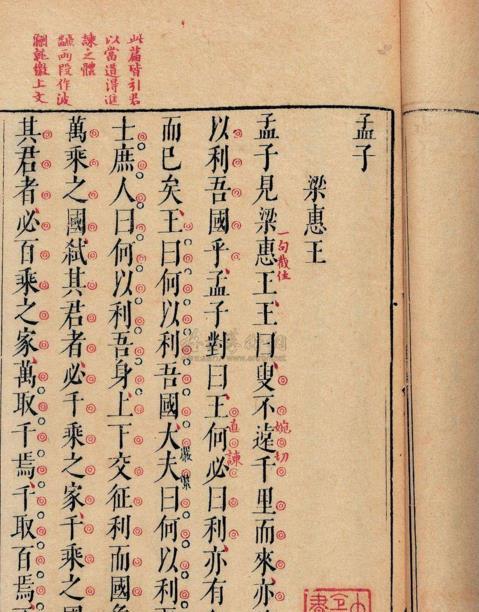 孟子
梁惠王
孟子見梁惠王王曰叟不遠千里而來亦
一句截住
婉切
以利吾國乎孟子對曰王何必曰利亦有
直諫
而已矣王曰何以利吾國大夫曰何以利
嚴緊
士庶人曰何以利吾身上下交征利而國
萬乘之國弒其君者必千乘之家千乘之國
其君者必百乘之家萬取千焉千取百焉
此篇皆引君
以當道得進
諫之體
兩段作波
上文